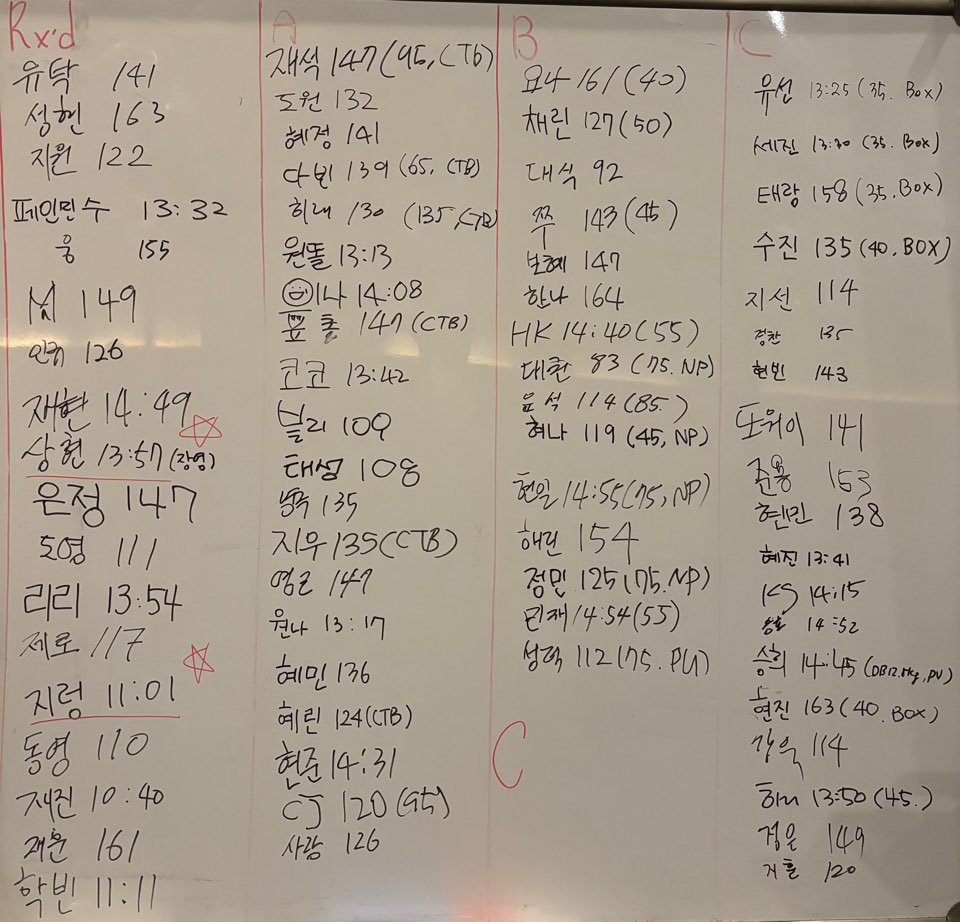 Rx'd
유탁 141
성현 163
지원 122
페인민수 13:32
웅 155
149
126
재현 14:49
상현 13:57 (장영)
은정 147
도영 111
리리 13:54
제로 117
지렁 11:01
동영 110
재진 10:40
재윤 161
학빈 11:11
A
재석 147 (95, CTB)
도원 132
혜정 141
다빈 139 (65, CTB)
희래 130 (135, CTB)
원똘 13:13
이나 14:08
147 (CTB)
코코 13:42
블리 109
태성 108
135
지우 135 (CTB)
영근 147
원나 13:17
혜민 136
혜린 124 (CTB)
현준 14:31
CJ 120 (95)
사랑 126
B
요나 161 (40)
채린 127 (50)
대석 92
쭈 143 (45)
보혜 147
한나 164
HK 14:40 (55)
대환 83 (75. NP)
윤석 114 (85.)
혀나 119 (45, NP)
현일 14:55 (75, NP)
해린 154
정민 125 (75. NP)
민재 14:54 (55)
성혁 112 (75. PU)
C
C
유선 13:25 (35. Box)
세진 13:30 (35. Box)
태랑 158 (35. BOX)
수진 135 (40. BOX)
지선 114
경찬 135
현빈 143
또위이 141
준용 153
현민 138
혜진 13:41
KS 14:15
14:52
승희 14:45 (DB12.5kg, PU)
현진 163 (40. BOX)
강욱 114
하니 13:50 (45.)
경은 149
거흘 120